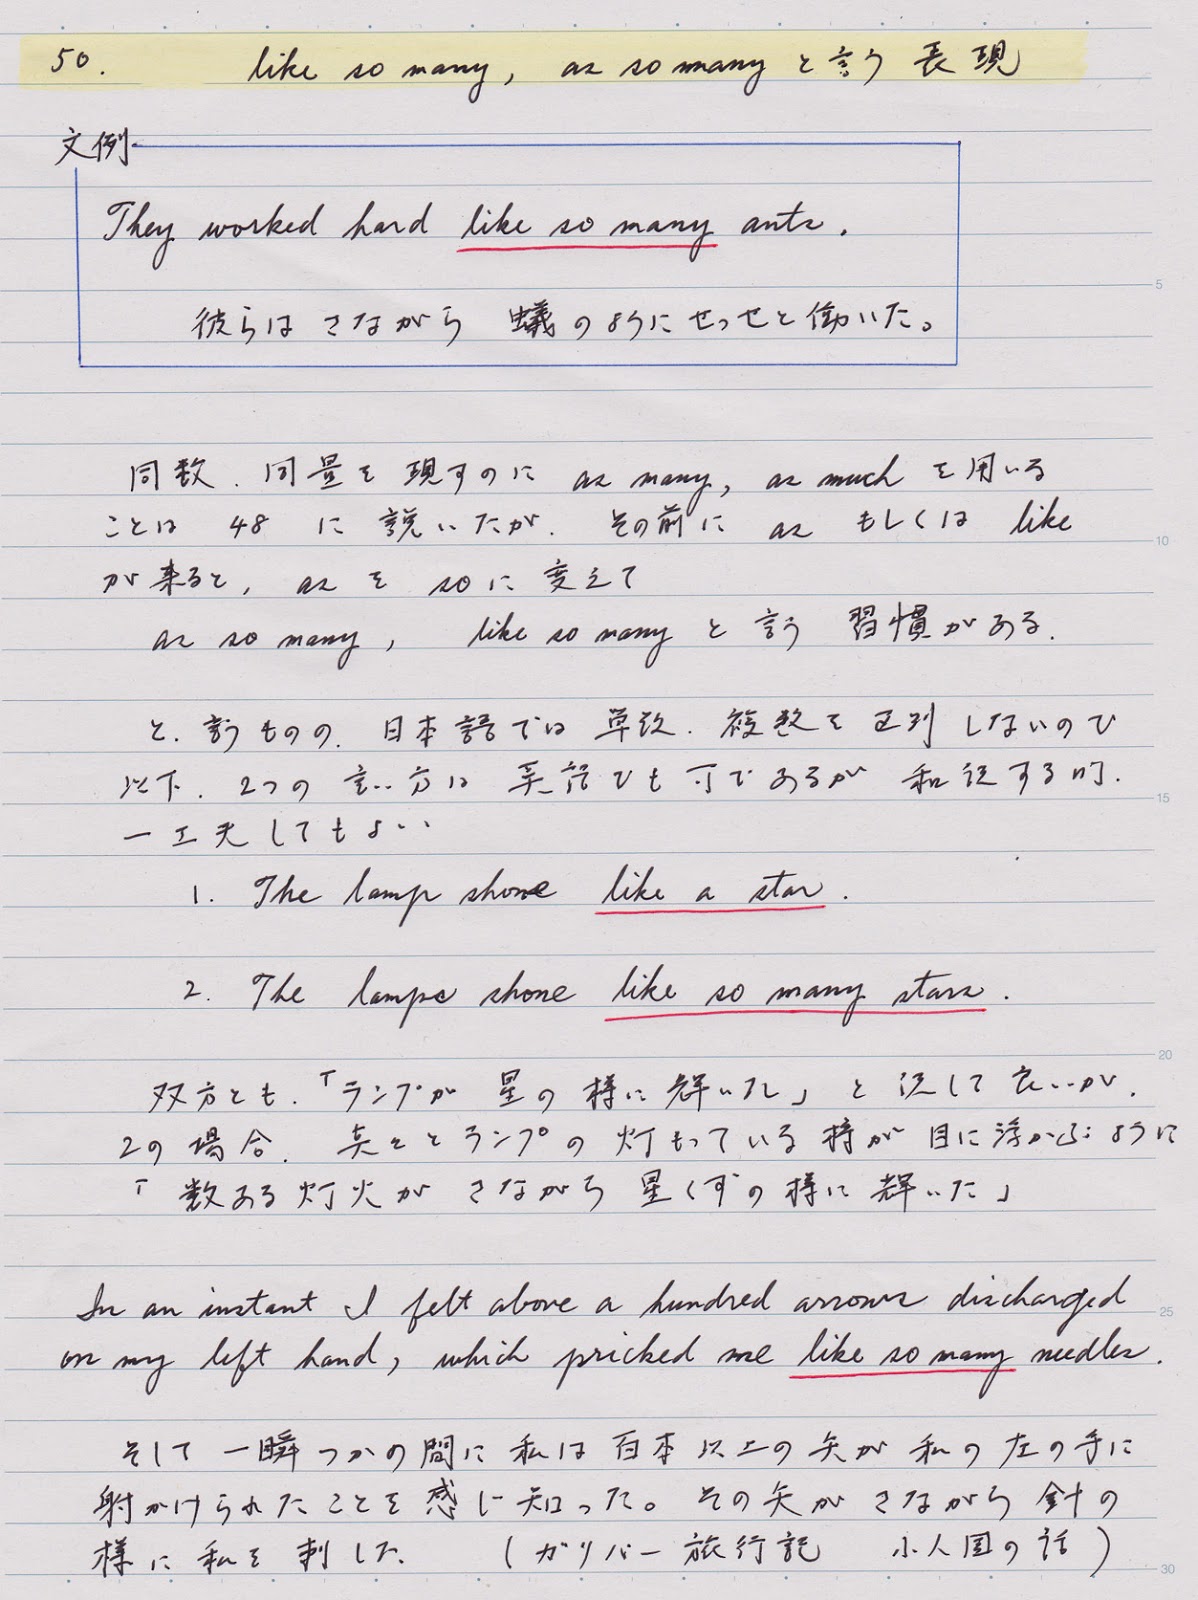 50. like so many, as so many と言う表現
文例
They worked hard like so many ants.
彼らは さながら 蟻のようにせっせと働いた。
5
同数、同量を現すのに as many, as much を用いる
ことは 48 に説いたが、その前に as もしくは like
10
が来ると, as を so に変えて
as so many, like so many と言う 習慣がある.
と、言うものの、日本語では 単数、複数を区別しないので
以下、2つの言い方は 英語でも可であるが 和訳する時、
15
一工夫してもよい
1. The lamp shone like a star.
2. The lamps shone like so many stars.
20
双方とも、「ランプが 星の様に輝いた」と訳して良いが、
2の場合、 とランプの灯もっている様が目に浮かぶように
「数ある灯火が さながら星くずの様に輝いた」
In an instant I felt above a hundred arrows discharged
25
on my left hand, which pricked me like so many needles.
そして一瞬つかの間に私は百本以上の矢が私の左の手に
射かけられたことを感じ知った。その矢がさながら針の
様に私を刺した. (ガリバー旅行記 小人国の話)
30